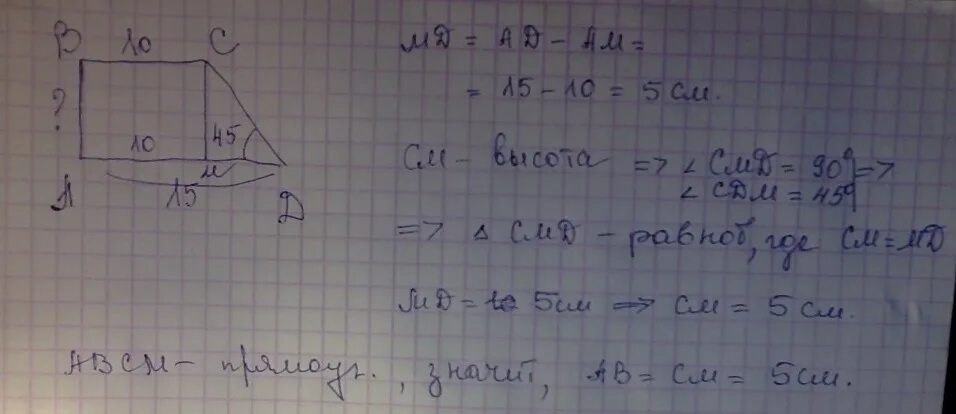 B 10 C
?
10 45
M
A 15 Д
МД = АД - АМ =
= 15 - 10 = 5 см.
СМ - высота => ∠ СМД = 90° =>
∠ СДМ = 45°
=> △ СМД - равноб, где СМ = МД
МД = 5 см => СМ = 5 см.
АВСМ - прямоуг. , значит, АВ = СМ = 5 см.